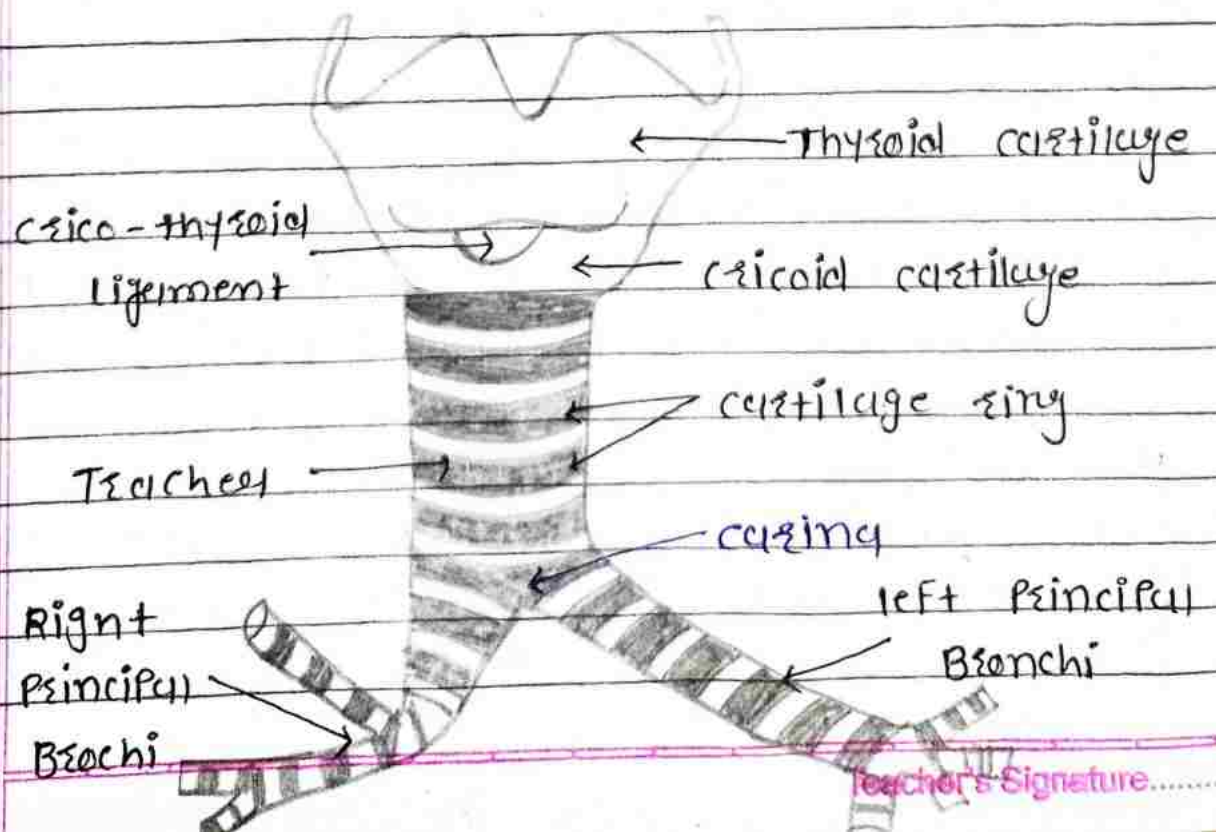 Thyroid cartilage
Crico-thyroid
Ligament
Cricoid cartilage
cartilage ring
Trachea
carina
Right
Principal
Brochi
left Principal
Bronchi
Teacher's Signature........